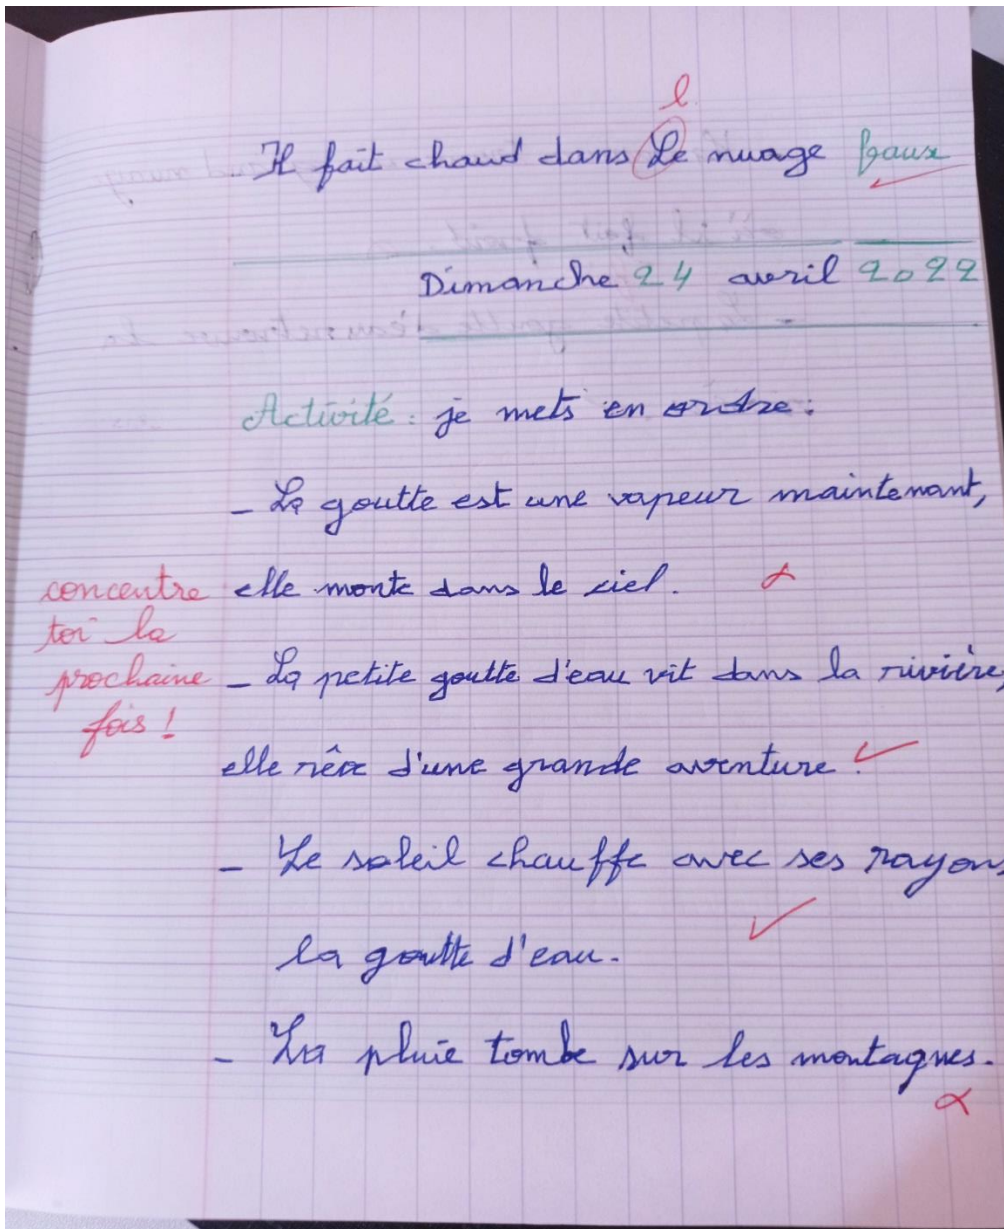 l
Il fait chaud dans Le nuage faux
Dimanche 24 avril 2022
Activité : je mets en ordre :
- La goutte est une vapeur maintenant,
elle monte dans le ciel.
- La petite goutte d'eau vit dans la rivière,
elle rêve d'une grande aventure.
- Le soleil chauffe avec ses rayons
la goutte d'eau.
- La pluie tombe sur les montagnes.
concentre
toi la
prochaine
fois !